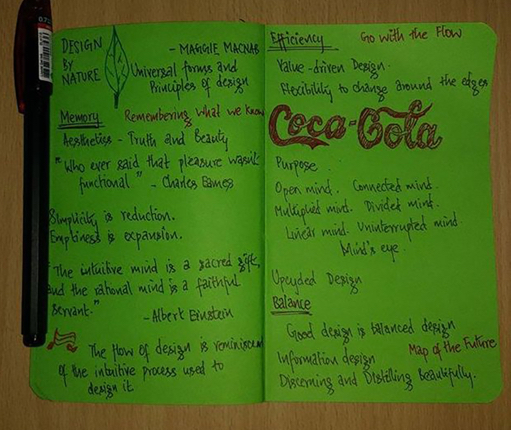 DESIGN
BY
NATURE
- MAGGIE MACNAB
Universal forms and
Principles of design
Memory
Remembering what we know
Aesthetics - Truth and Beauty
"Who ever said that pleasure wasn't
functional" - Charles Eames
Simplicity is reduction.
Emptiness is expansion.
"The intuitive mind is a sacred gift,
and the rational mind is a faithful
servant."
- Albert Einstein
The flow of design is reminiscen
of the intuitive process used to
design it
Efficiency
Go with the Flow
Value-driven Design.
Flexibility to change around the edges
Coca-Cola
Purpose
Open mind. Connected mind.
Multiplied mind. Divided mind.
Linear mind. Uninterrupted mind
Mind's eye.
Upcycled Design
Balance
Good design is balanced design
Map of the Future
Information design
Discerning and Distilling Beautifully.